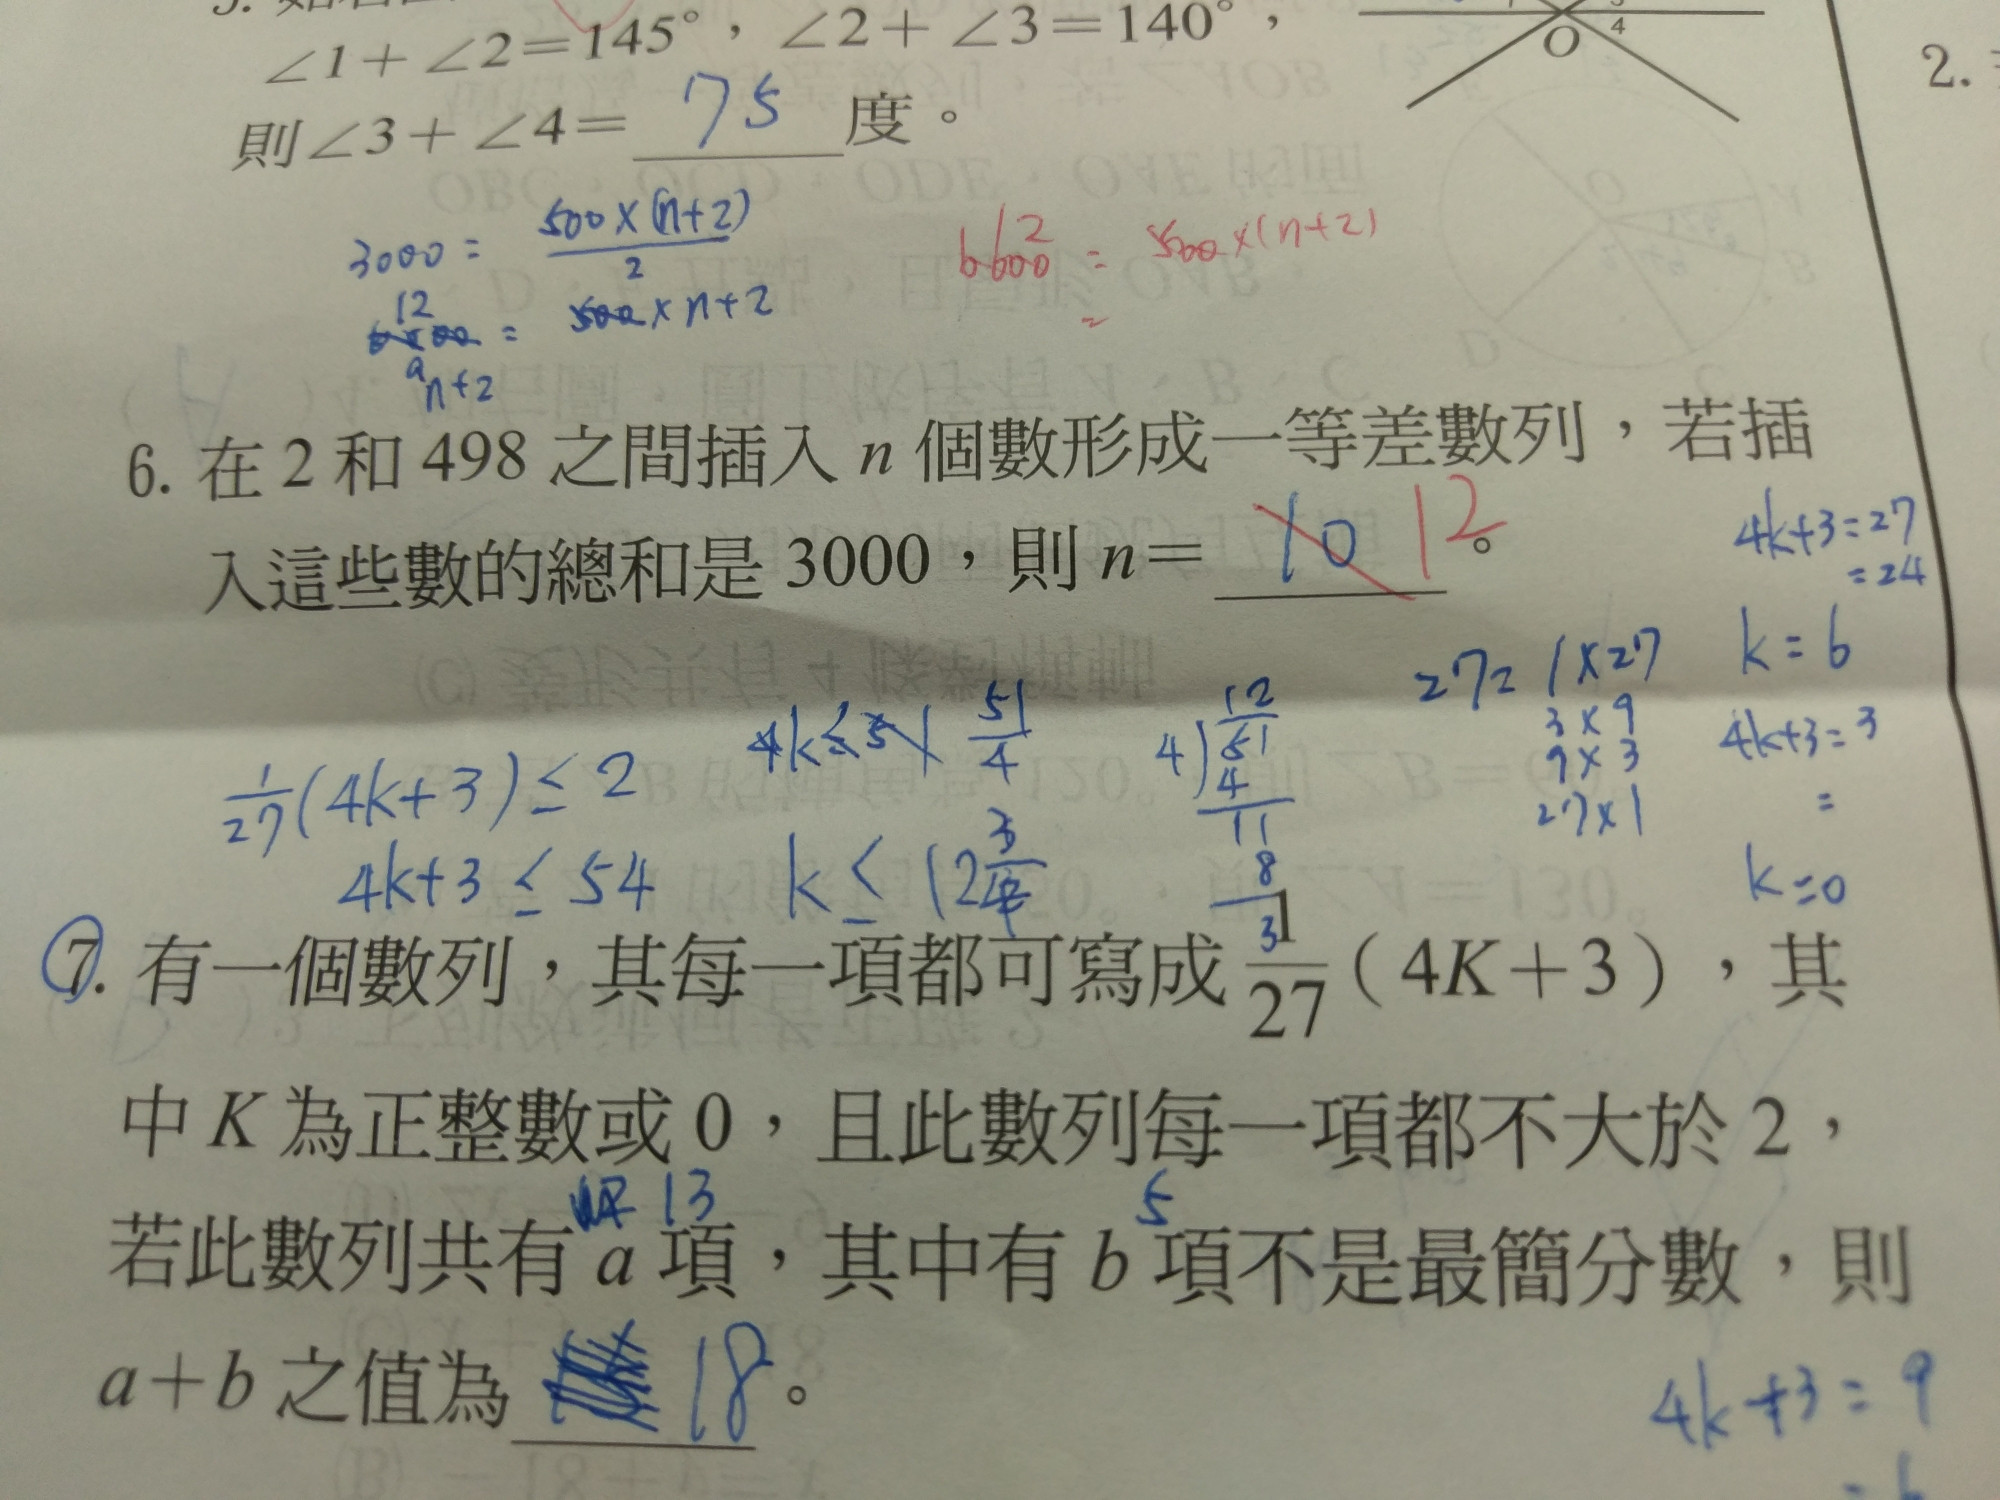 ∠1+∠2=145°，∠2+∠3=140°，
O
4
2.
則∠3+∠4= 75 度。
3000 = 500×(n+2)/2
6600 12 = 500×(n+2)
=
12
= 500×n+2
n+2
6. 在 2 和 498 之間插入 n 個數形成一等差數列，若插
入這些數的總和是 3000，則 n= 10 12。
4k+3=27
=24
k=6
4k+3=3
=
k=0
27= 1×27
3×9
9×3
27×1
1/27(4k+3)≤2
4k+3≤54
4k≤51 51/4
k≤12 3/4
12
4)51
4
11
8
3
7. 有一個數列，其每一項都可寫成 1/27（4K+3），其
中 K 為正整數或 0，且此數列每一項都不大於 2，
13 5
若此數列共有 a 項，其中有 b 項不是最簡分數，則
a+b 之值為 18。
4k+3=9
=6